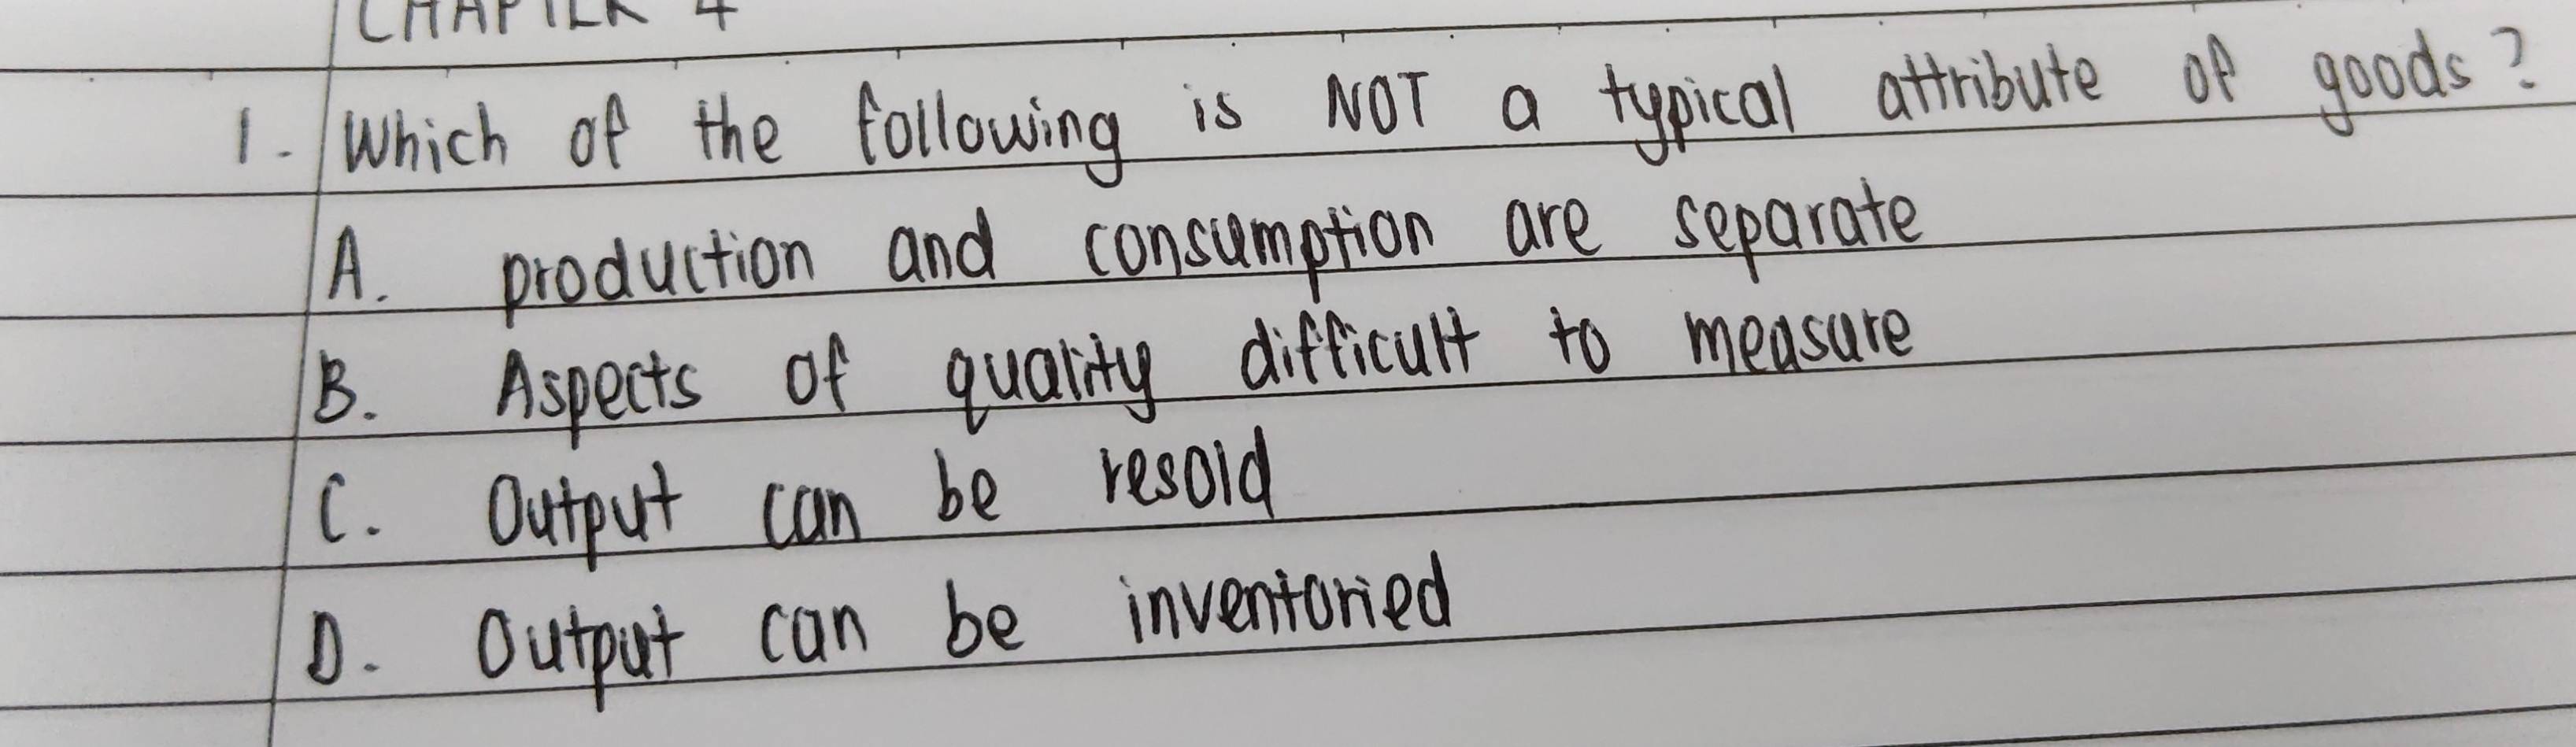 CHAPTER 4
1. Which of the following is NOT a typical attribute of goods?
A. production and consumption are separate
B. Aspects of quality difficult to measure
C. Output can be resold
D. Output can be inventoried